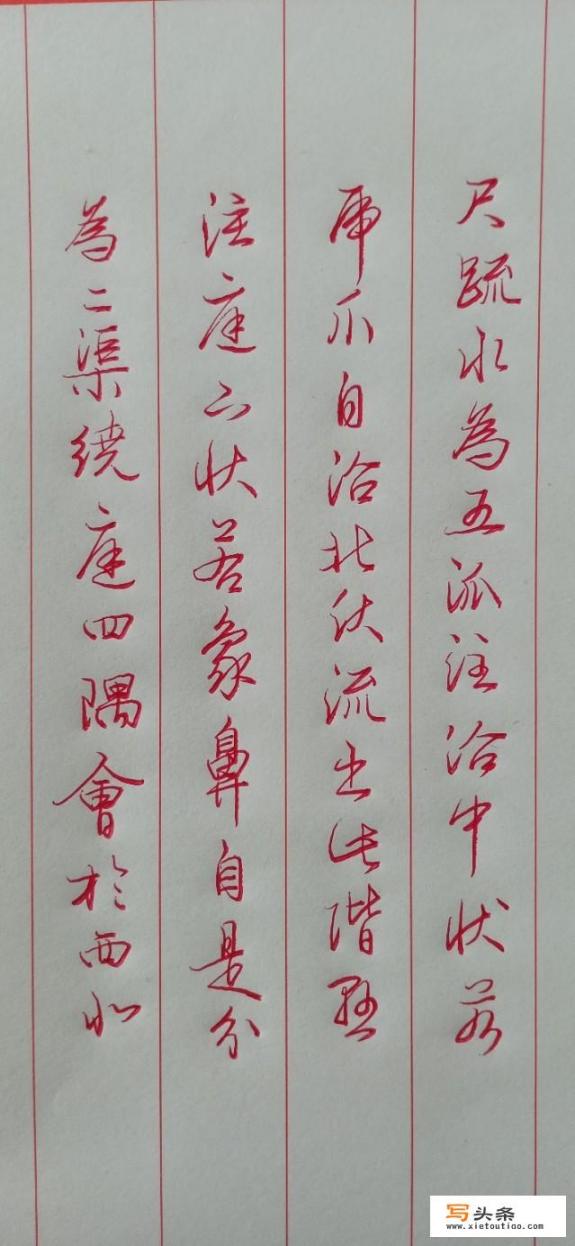 尺疏水為五派注沼中狀若
虎爪自沼北伏流出北階懸
注庭下狀若象鼻自是分
為二渠繞庭四隅會於西北
写头条
www.xietoutiao.com